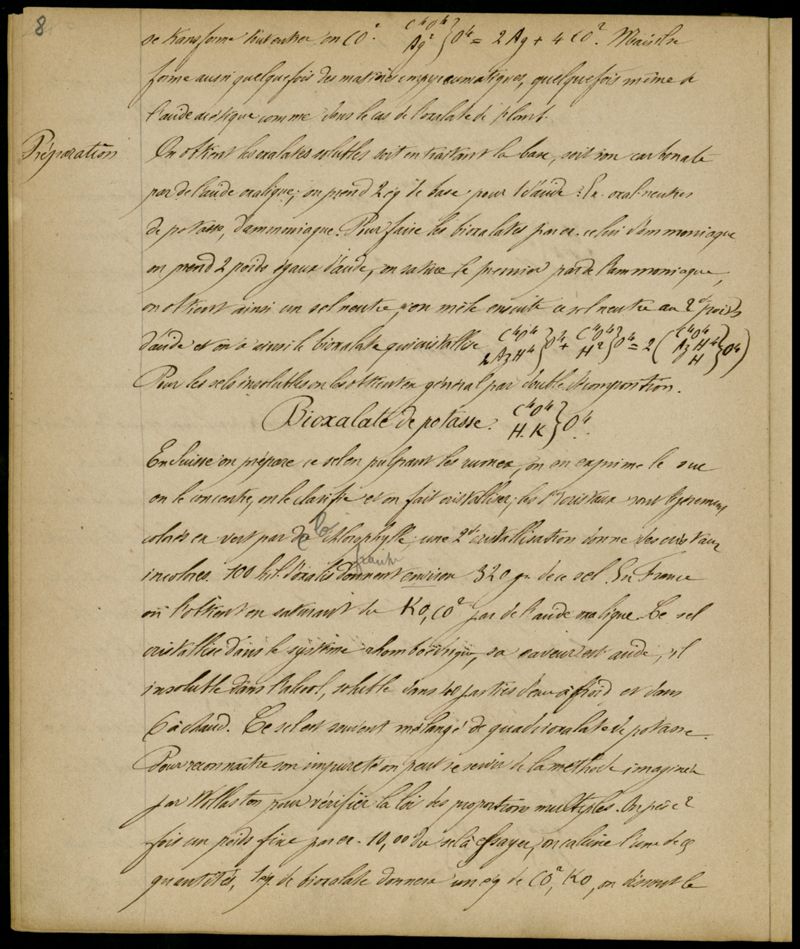 8
se transforme tout entier en CO². C⁴O⁴ Ag² } O⁴ = 2 Ag + 4 CO². Mais il se
forme aussi quelquefois des matières empyreumatiques, quelquefois même de
l'acide acétique comme dans le cas de l'oxalate de plomb.
Préparation
On obtient les oxalates solubles soit en traitant la base, soit son carbonate
par de l'acide oxalique; on prend 2 éq de base pour 1 d'acide : Ex. oxal. neutres
de potasse, d'ammoniaque. Pour faire les bioxalates par ex. celui d'ammoniaque
on prend 2 poids égaux d'acide, on sature le premier par de l'ammoniaque,
on obtient ainsi un sel neutre, on mêle ensuite ce sel neutre au 2e poids
d'acide et on a ainsi le bioxalate qui cristallise C⁴O⁴ 2AzH⁴ } O⁴ + C⁴O⁴ H² } O⁴ = 2 ( C⁴O⁴ AzH⁴ H } O⁴ )
Pour les sels insolubles on les obtient en général par double décomposition.
Bioxalate de potasse. C⁴O⁴ H.K } O⁴.
En Suisse on prépare ce sel en pulpant les rumex, on en exprime le suc
on le concentre, on le clarifie et on fait cristalliser; les 1ers cristaux sont légèrement
colorés en vert par de la Chlorophylle; une 2e cristallisation donne des cristaux
incolores. 100 kil. d'oxalis donnent environ 320 gr de ce sel. En France
on l'obtient en saturant du KO, CO² par de l'acide oxalique. Ce sel
cristallise dans le système rhomboédrique, sa saveur est acide, il
insoluble dans l'alcool, soluble dans 40 parties d'eau à froid et dans
6 à chaud. Ce sel est souvent mélangé de quadroxalate de potasse.
Pour reconnaître son impureté on peut se servir de la méthode imaginée
par Wollaston pour vérifier la loi des proportions multiples. On pèse 2
fois un poids fixe par ex. 10,00 du sel à essayer, on calcine l'une de ces
quantités, 1 éq de bioxalate donnera un éq de CO², KO, on dissout le